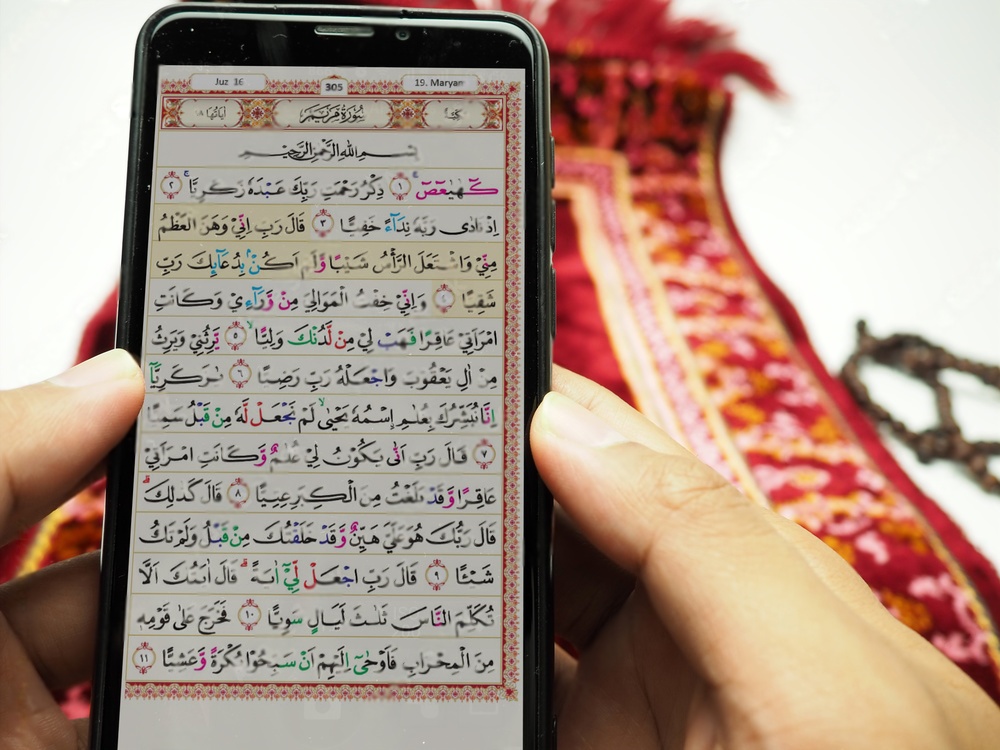 Juz 16
305
19. Maryam
سُورَةُ مَرْيَمَ
بِسْمِ اللهِ الرَّحْمٰنِ الرَّحِيْمِ
كۤهٰيٰعۤصۤ ۚ ١ ذِكْرُ رَحْمَتِ رَبِّكَ عَبْدَهٗ زَكَرِيَّا ۚ ٢
اِذْ نَادٰى رَبَّهٗ نِدَاۤءً خَفِيًّا ٣ قَالَ رَبِّ اِنِّيْ وَهَنَ الْعَظْمُ
مِنِّيْ وَاشْتَعَلَ الرَّأْسُ شَيْبًا وَّلَمْ اَكُنْۢ بِدُعَاۤىِٕكَ رَبِّ
شَقِيًّا ٤ وَاِنِّيْ خِفْتُ الْمَوَالِيَ مِنْ وَّرَاۤءِيْ وَكَانَتِ
امْرَاَتِيْ عَاقِرًا فَهَبْ لِيْ مِنْ لَّدُنْكَ وَلِيًّا ۙ ٥ يَّرِثُنِيْ وَيَرِثُ
مِنْ اٰلِ يَعْقُوْبَ وَاجْعَلْهُ رَبِّ رَضِيًّا ٦ يٰزَكَرِيَّآ
اِنَّا نُبَشِّرُكَ بِغُلٰمِ ࣙاسْمُهٗ يَحْيٰىۙ لَمْ نَجْعَلْ لَّهٗ مِنْ قَبْلُ سَمِيًّا
٧ قَالَ رَبِّ اَنّٰى يَكُوْنُ لِيْ غُلٰمٌ وَّكَانَتِ امْرَاَتِيْ
عَاقِرًا وَّقَدْ بَلَغْتُ مِنَ الْكِبَرِ عِتِيًّا ٨ قَالَ كَذٰلِكَۗ
قَالَ رَبُّكَ هُوَ عَلَيَّ هَيِّنٌ وَّقَدْ خَلَقْتُكَ مِنْ قَبْلُ وَلَمْ تَكُ
شَيْـًٔا ٩ قَالَ رَبِّ اجْعَلْ لِّيْٓ اٰيَةً ۗقَالَ اٰيَتُكَ اَلَّا
تُكَلِّمَ النَّاسَ ثَلٰثَ لَيَالٍ سَوِيًّا ١٠ فَخَرَجَ عَلٰى قَوْمِهٖ
مِنَ الْمِحْرَابِ فَاَوْحٰٓى اِلَيْهِمْ اَنْ سَبِّحُوْا بُكْرَةً وَّعَشِيًّا ١١